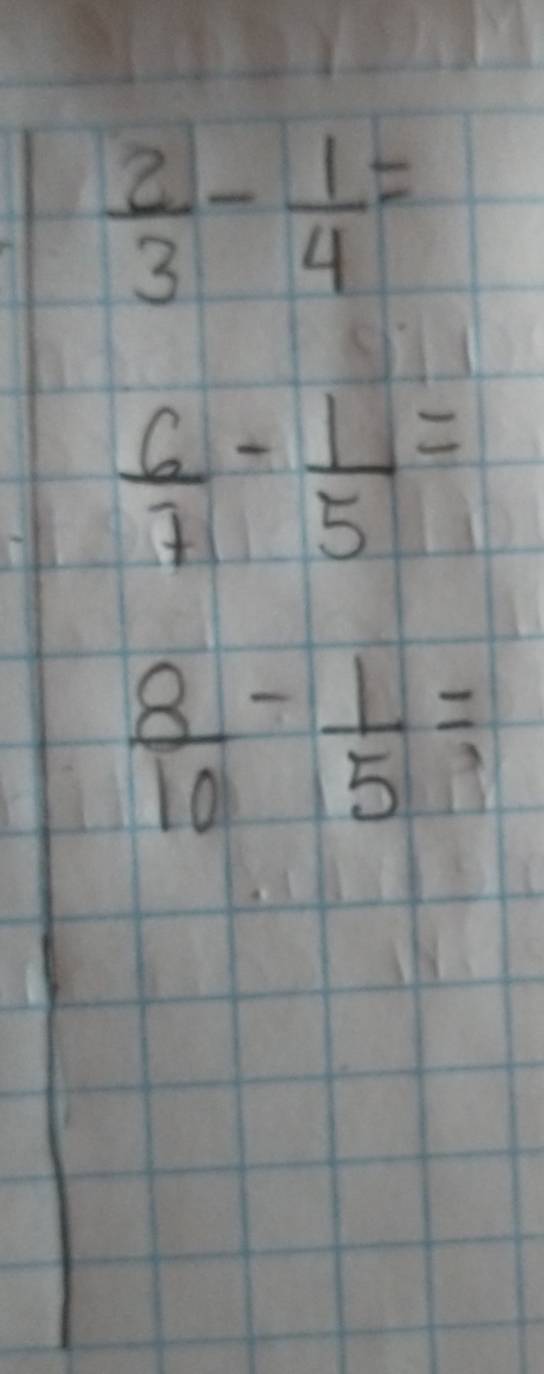 2/3 - 1/4 =
6/7 - 1/5 =
8/10 - 1/5 =